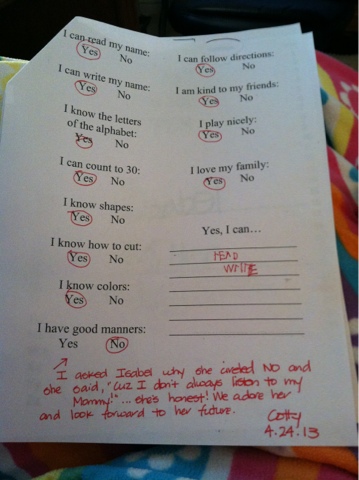 I can read my name:
Yes No
I can write my name:
Yes No
I know the letters
of the alphabet:
Yes No
I can count to 30:
Yes No
I know shapes:
Yes No
I know how to cut:
Yes No
I know colors:
Yes No
I have good manners:
Yes No
I can follow directions:
Yes No
I am kind to my friends:
Yes No
I play nicely:
Yes No
I love my family:
Yes No
Yes, I can...
READ
WRITE
I asked Isabel why she circled NO and
she said, "Cuz I don't always listen to my
Mommy!"... she's honest! We adore her
and look forward to her future.
4.24.13